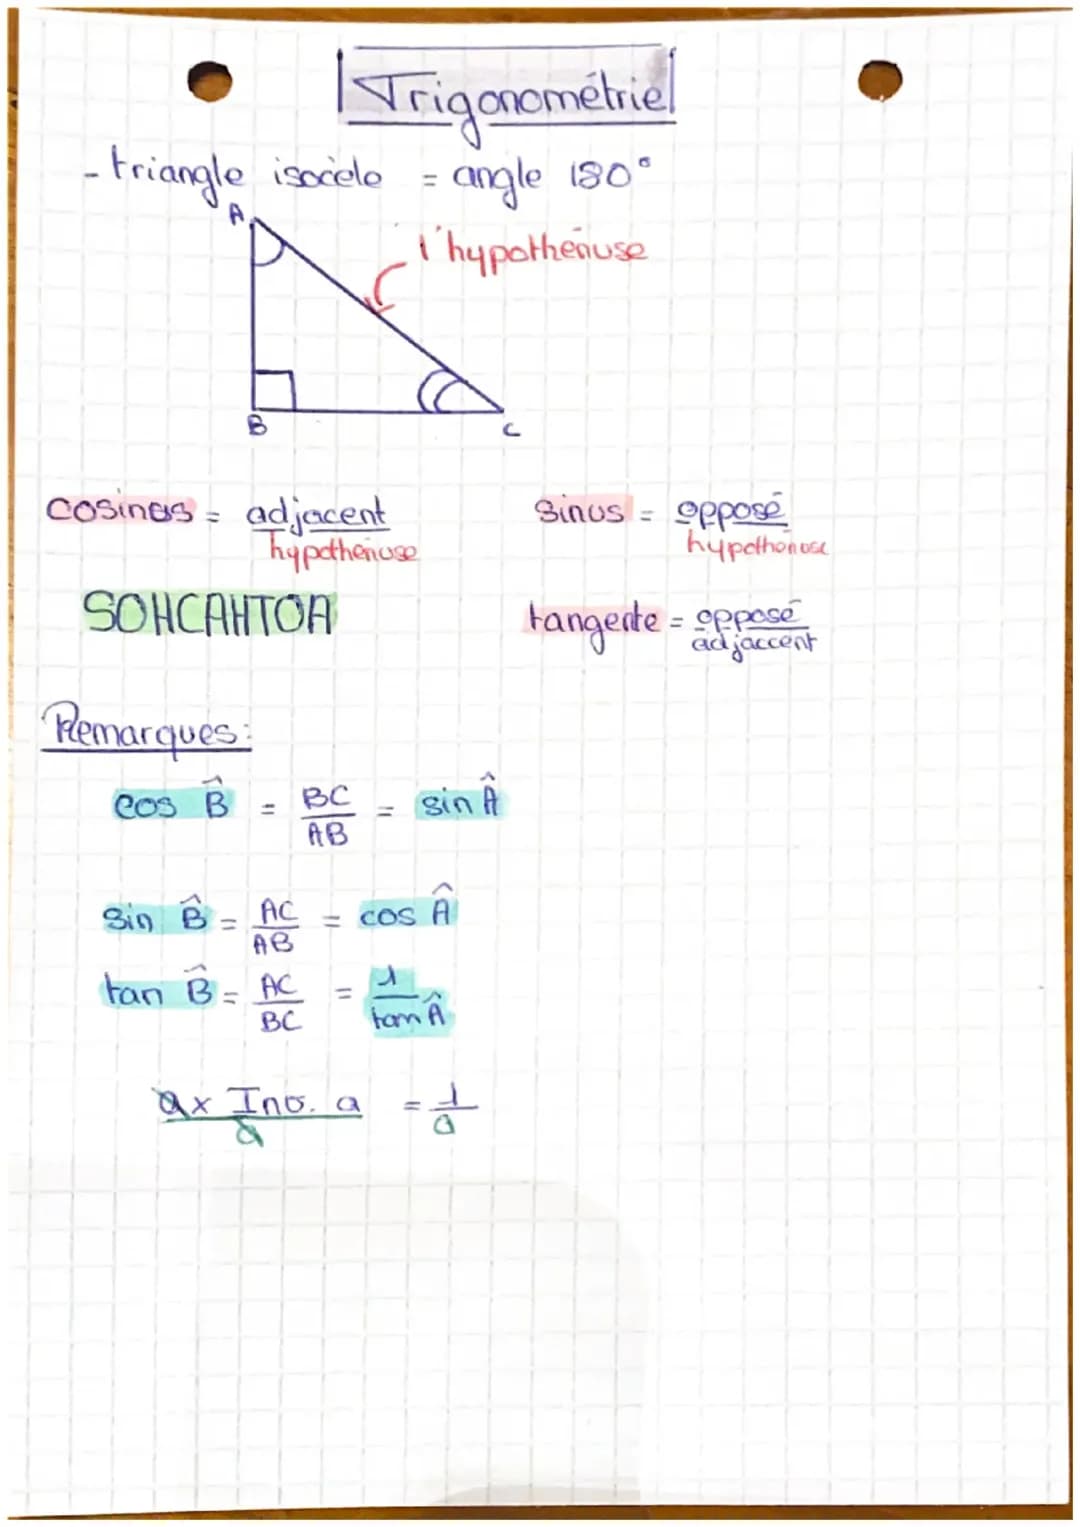 Trigonométrie
- triangle isocèle = angle 180°
A
l'hypothénuse
B
C
cosinus = adjacent / hypothénuse
sinus = opposé / hypothénuse
SOHCAHTOA
tangente = opposé / adjaccent
Remarques:
cos B̂ = BC / AB = sin Â
sin B̂ = AC / AB = cos Â
tan B̂ = AC / BC = 1 / tan Â
a x Inv. a / a = 1 / a